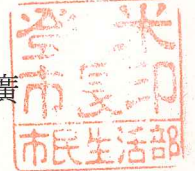 廣
登米
市長印
市民生活部